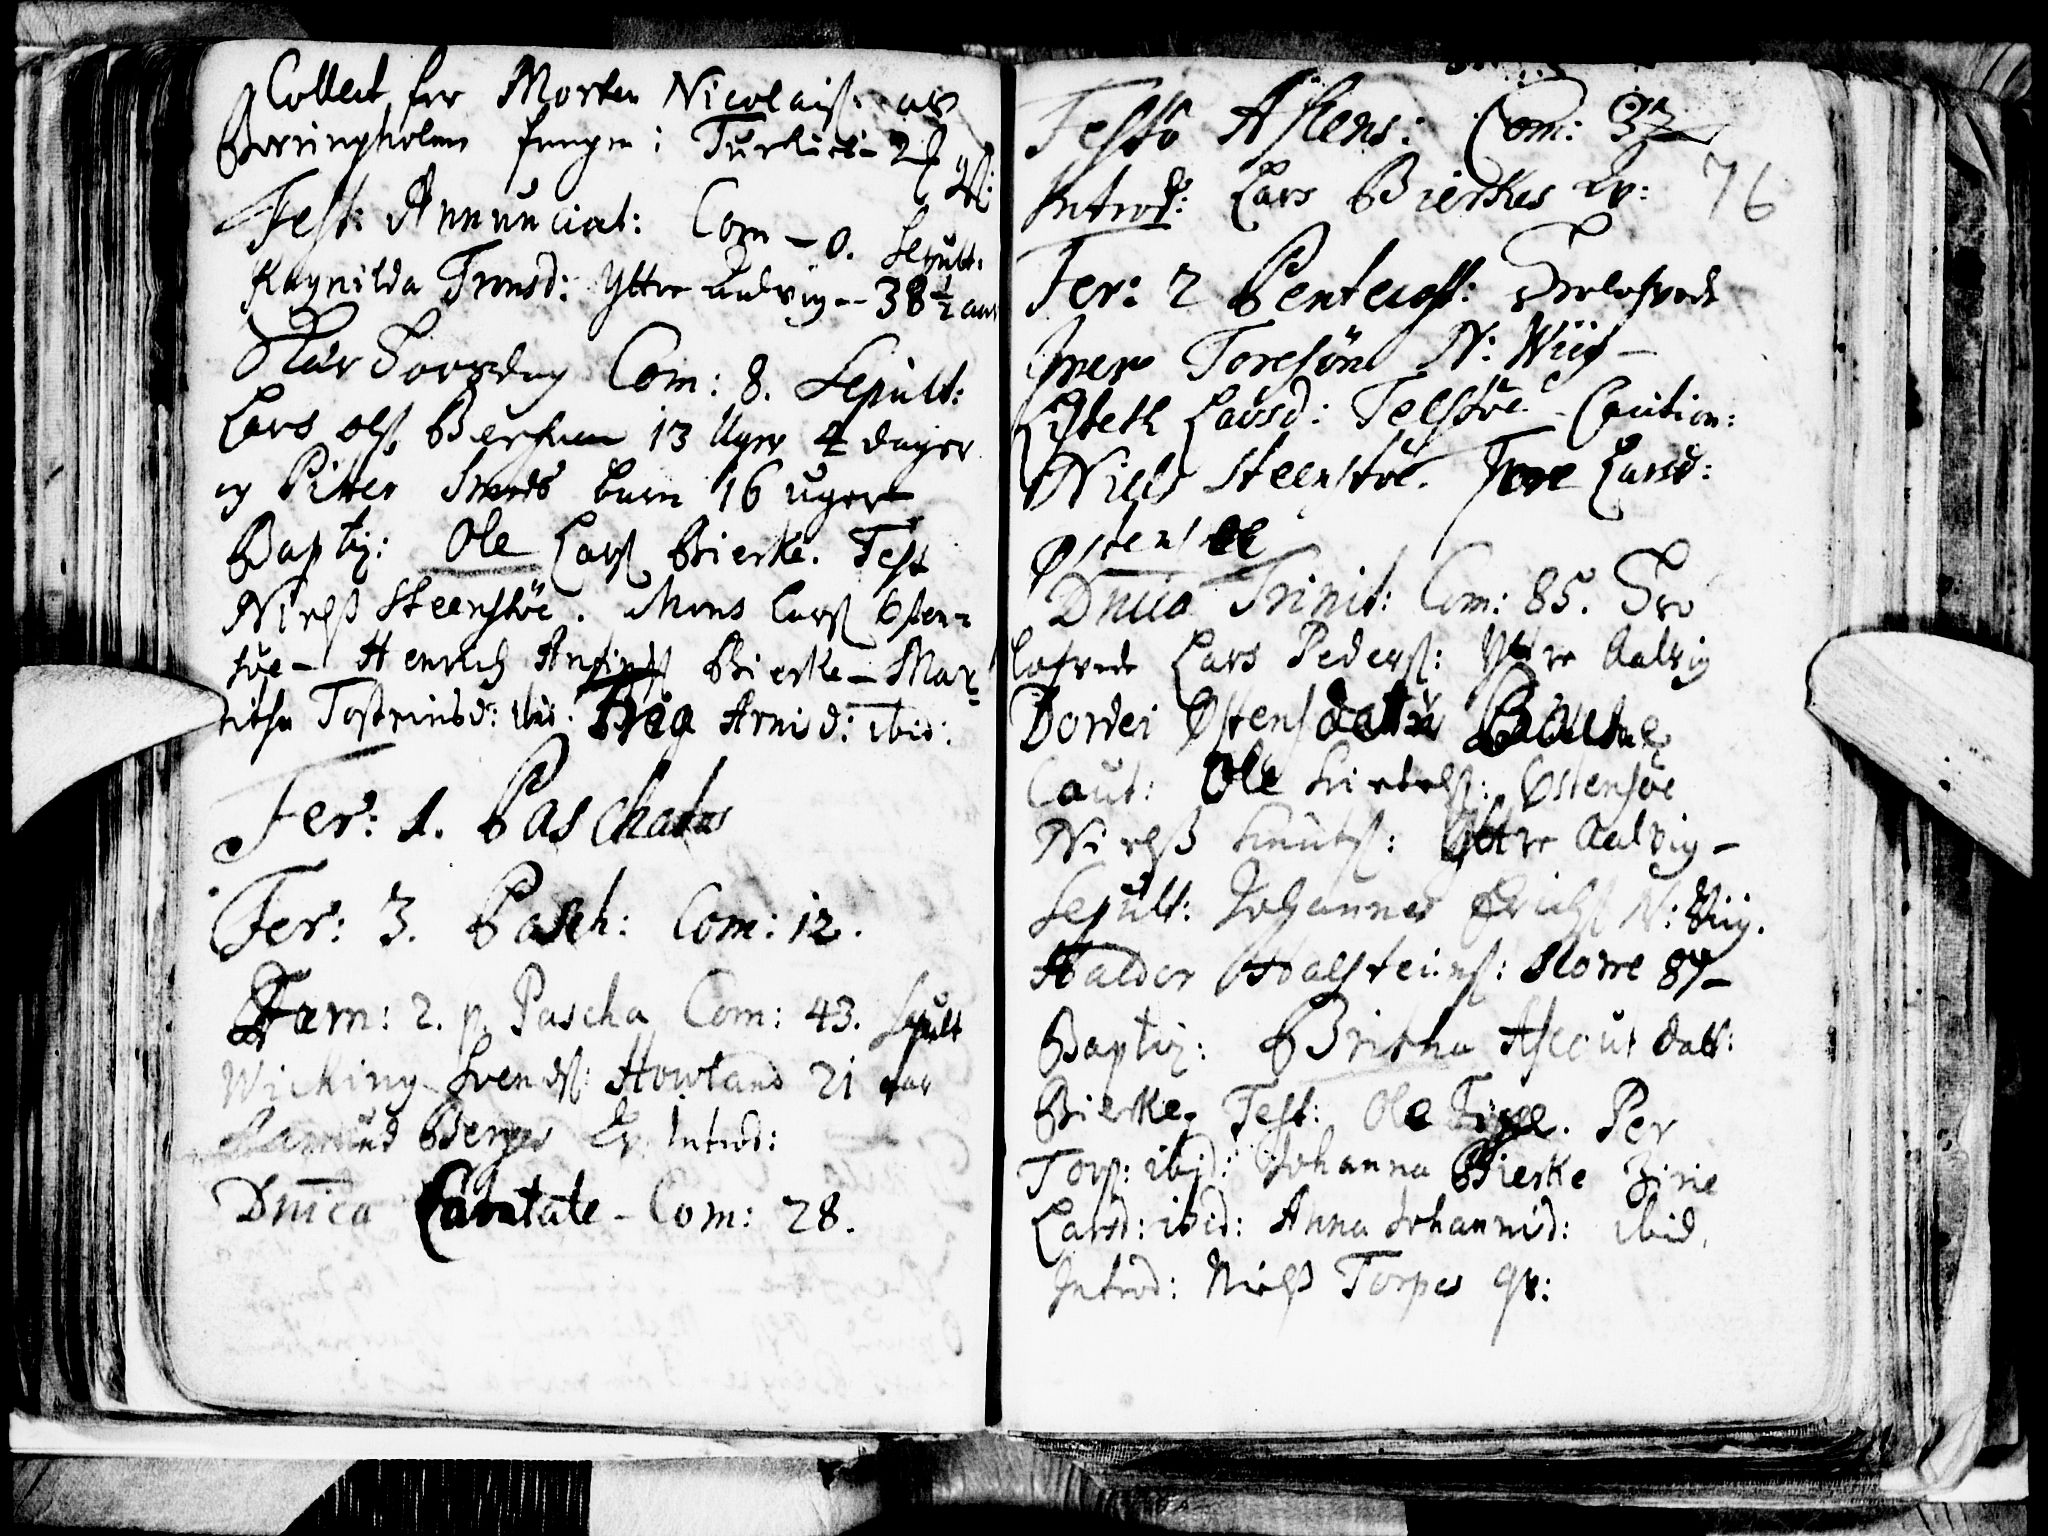 Collect for Morten Nicolaiß: aff
Borringholm fangen i Turkiet 2
Fest: Annunciat: Com – 0. Sepult:
Ragnilda Tronsd: Yttre Aalvig – 38 ½ aar
Skiær Torsdag Com: 8. Sepult:
Lars Olß 13 Uger 4 dager
og Pitter barn 16 uger
Baptiz: Ole Larß Bierke. Test
Nielß Steenstøe. Mons Larß Østen=
støe – Henrich Bierke – Mar=
ritha Tostensd: ibid. Arnisd: ibid:
Fer: 1. Paschatus
Fer: 3. Pasch: Com: 12.
Fam: 2. p. Pascha Com: 43. Sepult
Wicking Svendß: Howland 21 aar
Aamund Berges Qv. Introd:
Dnica Cantate – Com: 28.
Festo Ascens: Com: 37
Introd: Lars Bierkes Qv: 76
Fer: 2 Pentecost: Trolofvede
Iver Toresøn N: Wiig –
Lisbeth Larsd: Telstøe – Caution:
Niels Steenstøe. Larsß:
Østensøe
Dnica Trinit: Com: 85. Tro
lofvede Lars Pederß: Yttre Aalvig
Dordei Østens datter
Caut: Ole Østensøe
Nielß Knutß: Yttre Aalvig –
Sepult: Johannes Erichß N: Wiig.
Haldor Halsteinß: Norre 87 –
Baptiz: Britha Ascout datt:
Bierke, Test: Ole. Per
Torß: ibid: Johanna Bierke Zirie
Larsd: ibid: Anna Johannisd: ibid.
Introd: Nielß Torpes qv: